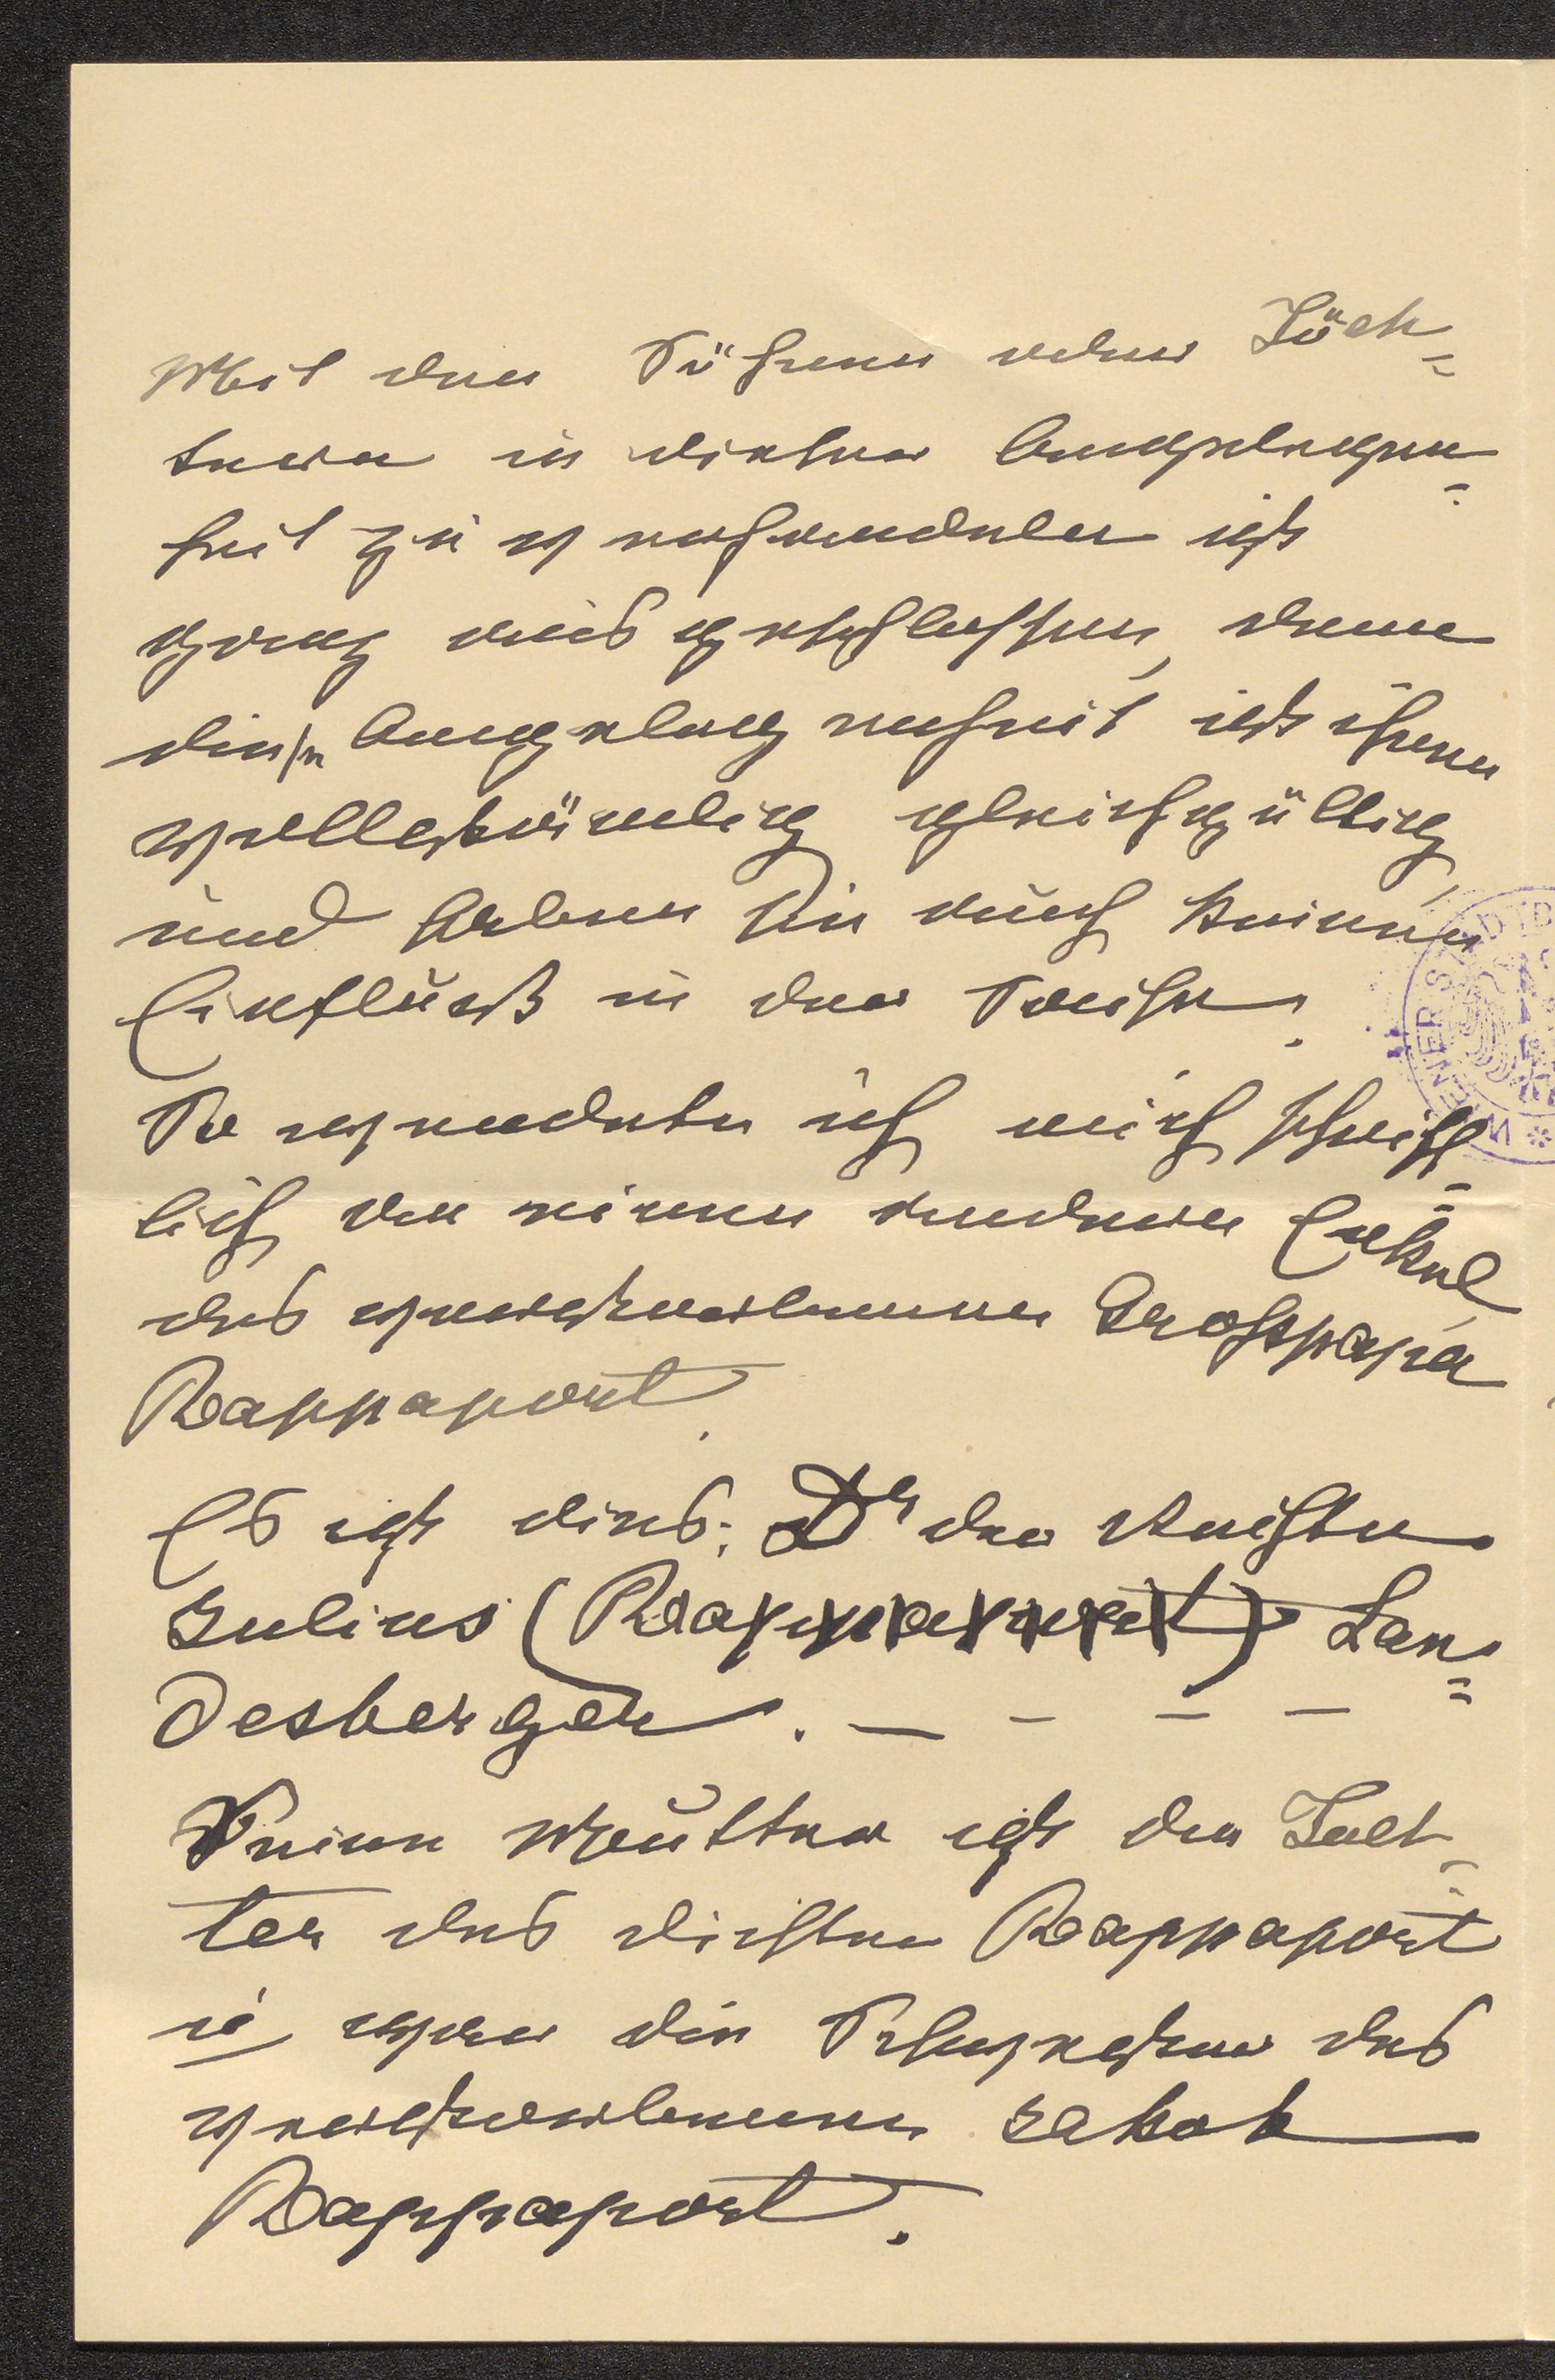 Mit den Söhnen oder Töch=
tern in dieser Angelegen=
heit zu verhandeln ist
ganz ausgeschlossen, denn
diese Angelegenheit ist ihnen
vollständig gleichgültig
und haben Sie auch keinen
Einfluß in der Sache.
So wendete ich mich schrift=
lich an einen anderen Enkel
des verstorbenen Grosspapa
Rappaport.
Es ist dies: Dr der Rechte
Julius (Rappaport) Lan=
desberger. — — — —
Seine Mutter ist die Toch=
ter des Dichters Rappaport
u war die Schwester des
verstorbenen Jakob
Rappaport.
WIENER STADTB